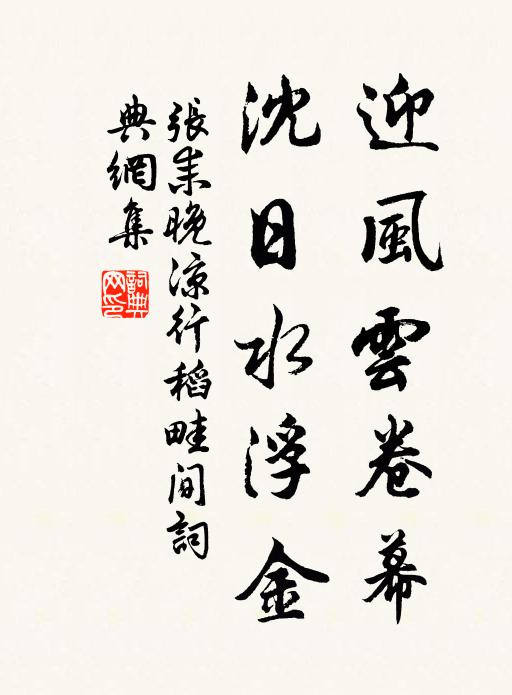 迎風雲卷幕
沈日水浮金
張耒晚涼行稻畦間詞
典網集
詞典網印